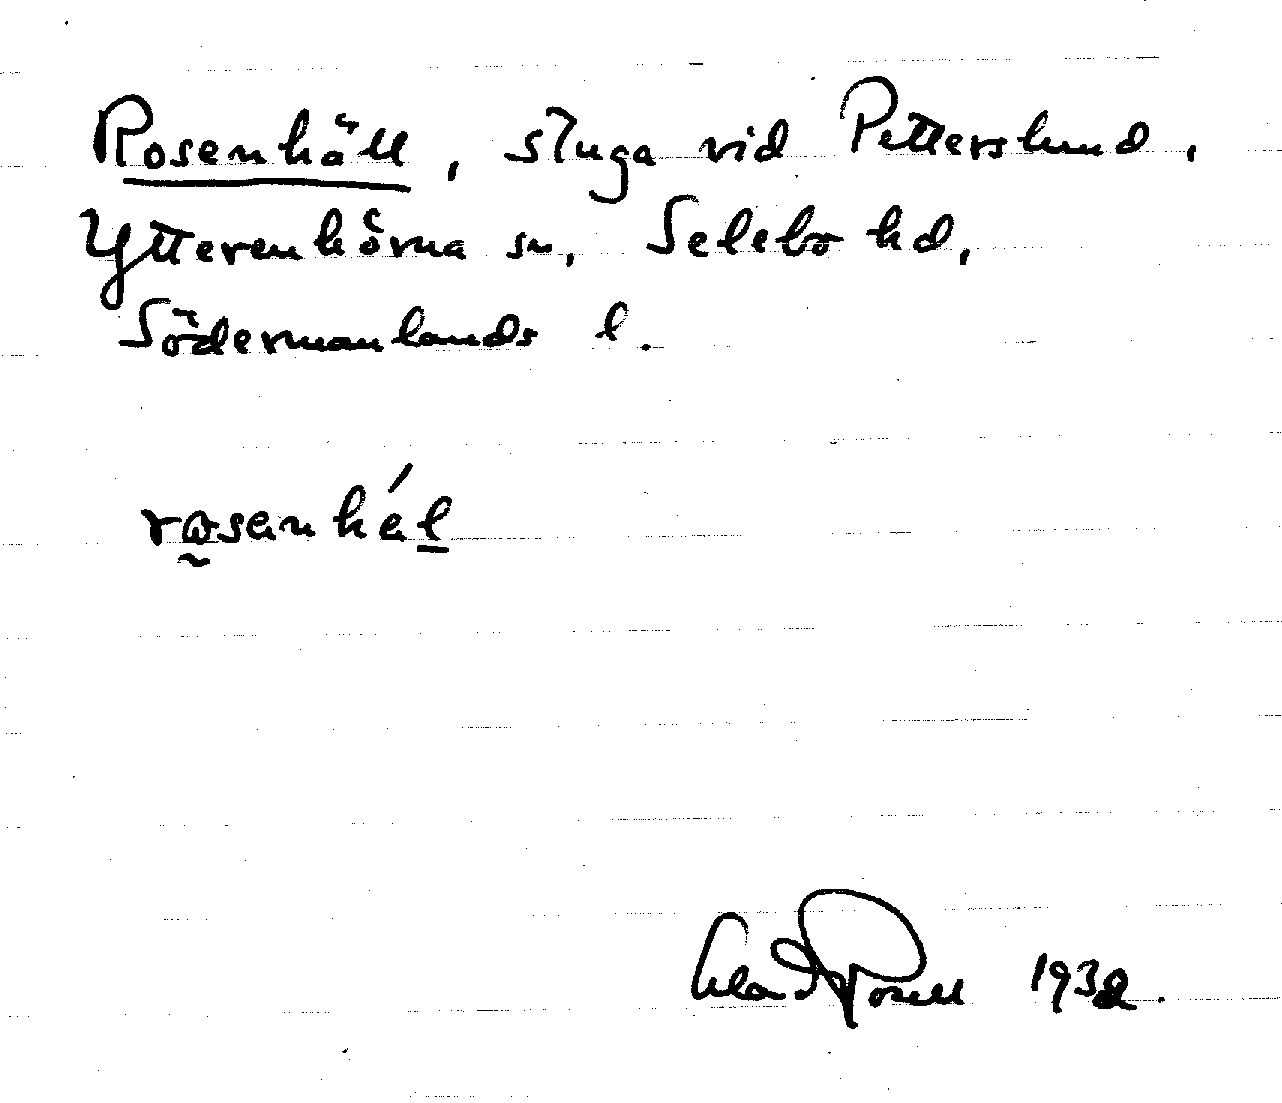 Rosenhäll, stuga vid Petterslund,
Ytterenhörna sn, Selebo hd,
Södermanlands l.
rosenhál
1932.